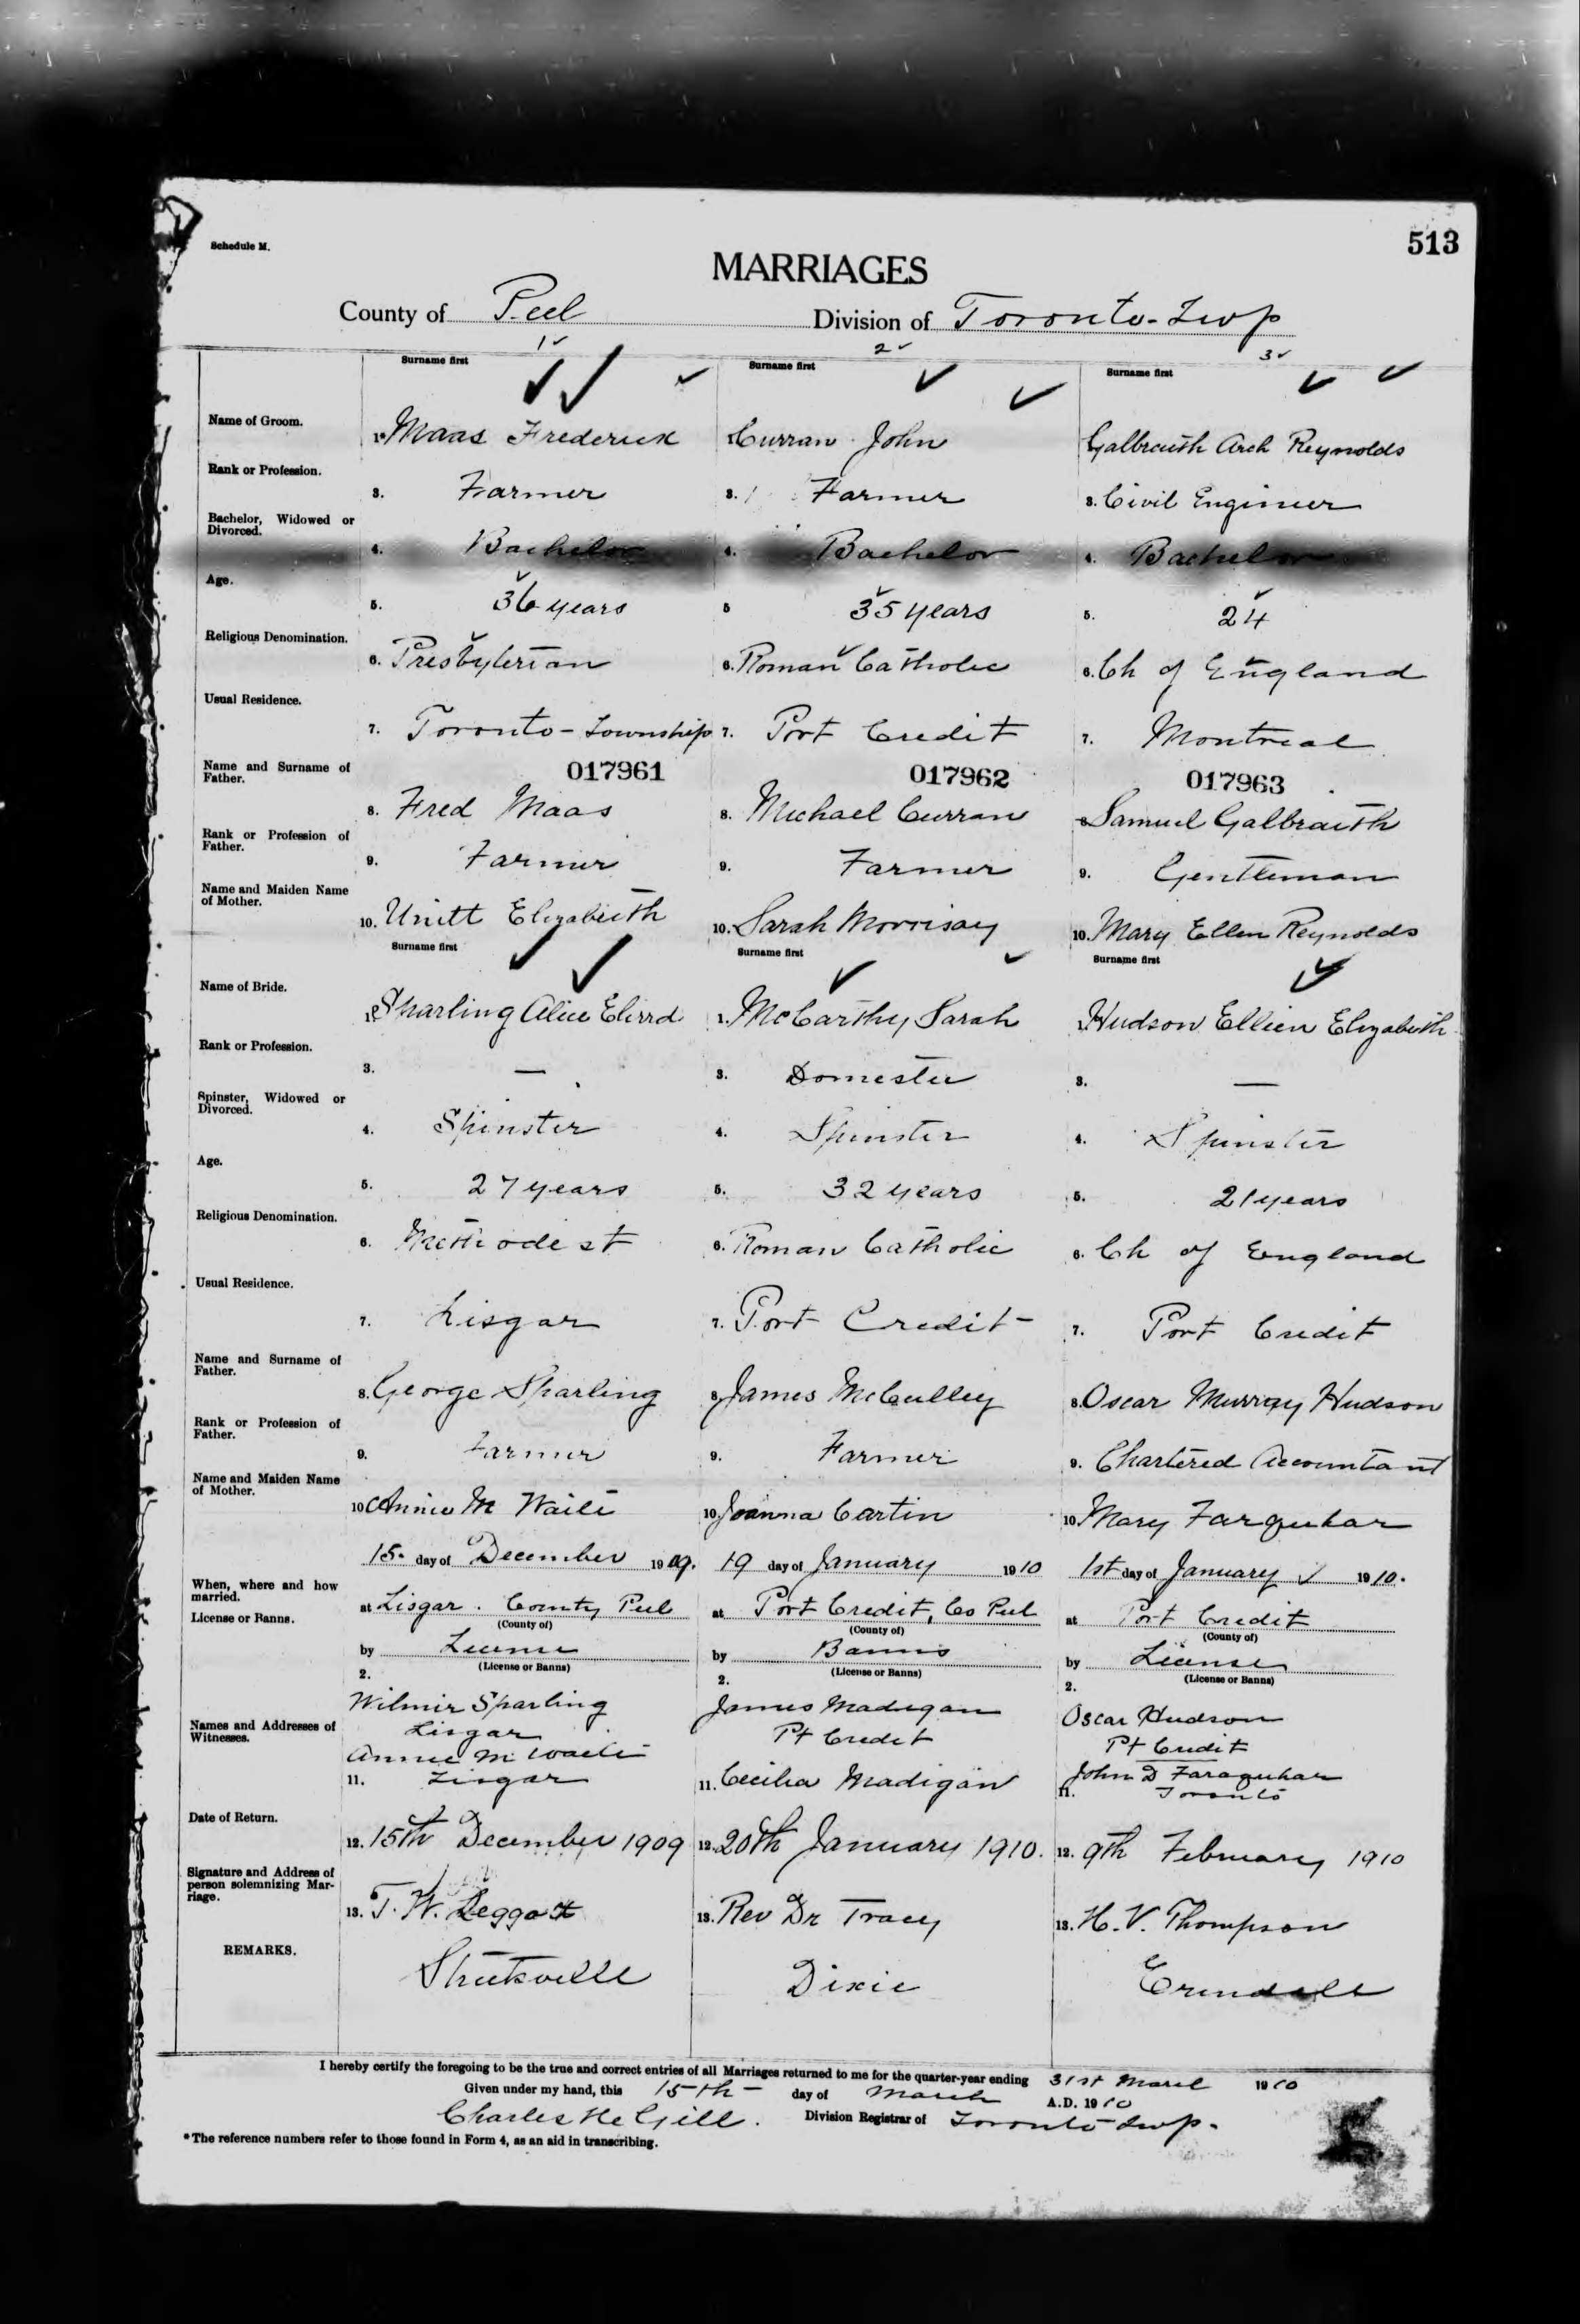 513
Schedule M.
MARRIAGES
County of Peel Division of Toronto-Twp
1 2 3
Surname first Surname first Surname first
Name of Groom. 1* Maas Frederick 1. Curran John Galbraith Arch Reynolds
Rank or Profession. 3. Farmer 3. Farmer 3. Civil Engineer
Bachelor, Widowed or Divorced. 4. Bachelor 4. Bachelor 4. Bachelor
Age. 5. 36 years 5 35 years 5. 24
Religious Denomination. 6. Presbyterian 6. Roman Catholic 6. Ch of England
Usual Residence. 7. Toronto-Township 7. Port Credit 7. Montreal
017961 017962 017963
Name and Surname of Father. 8. Fred Maas 8. Michael Curran 8. Samuel Galbraith
Rank or Profession of Father. 9. Farmer 9. Farmer 9. Gentleman
Name and Maiden Name of Mother. 10. Unitt Elizabeith 10. Sarah Morrisay 10. Mary Ellen Reynolds
Surname first Surname first Surname first
Name of Bride. 1. Sparling Alice 1. McCarthy Sarah 1. Hudson Ellien Elizabeith
Rank or Profession. 3. — 3. Domestic 3. —
Spinster, Widowed or Divorced. 4. Spinster 4. Spinster 4. Spinster
Age. 5. 27 years 5. 32 years 5. 21 years
Religious Denomination. 6. Methodist 6. Roman Catholic 6. Ch of England
Usual Residence. 7. Lisgar 7. Port Credit 7. Port Credit
Name and Surname of Father. 8. George Sparling 8. James McCulley 8. Oscar Murray Hudson
Rank or Profession of Father. 9. Farmer 9. Farmer 9. Chartered Accountant
Name and Maiden Name of Mother. 10 Annie M Waite 10. Joanna Cartin 10. Mary Farquhar
15. day of December 1909. 19 day of January 1910 1st day of January 1910.
When, where and how married. at Lisgar. County Peel at Port Credit, Co Peel at Port Credit
(County of) (County of) (County of)
License or Banns. by License by Banns by License
(License or Banns) (License or Banns) (License or Banns)
2. 2. 2.
Wilmir Sparling James Madigan Oscar Hudson
Names and Addresses of Witnesses. Lisgar Pt Credit Pt Credit
Annie M Waite John D Faraquhar
11. Lisgar 11. Cecilia Madigan 11. Toronto
Date of Return. 12. 15th December 1909 12. 20th January 1910. 12. 9th February 1910
Signature and Address of person solemnizing Marriage. 13. T. W. Leggott 13. Rev Dr Tracy 13. H. V. Thompson
REMARKS. Streetsville Dixie Erindale
I hereby certify the foregoing to be the true and correct entries of all Marriages returned to me for the quarter-year ending 31st March 1910
Given under my hand, this 15th day of March A.D. 1910
Charles McGill. Division Registrar of Toronto Twp.
*The reference numbers refer to those found in Form 4, as an aid in transcribing.